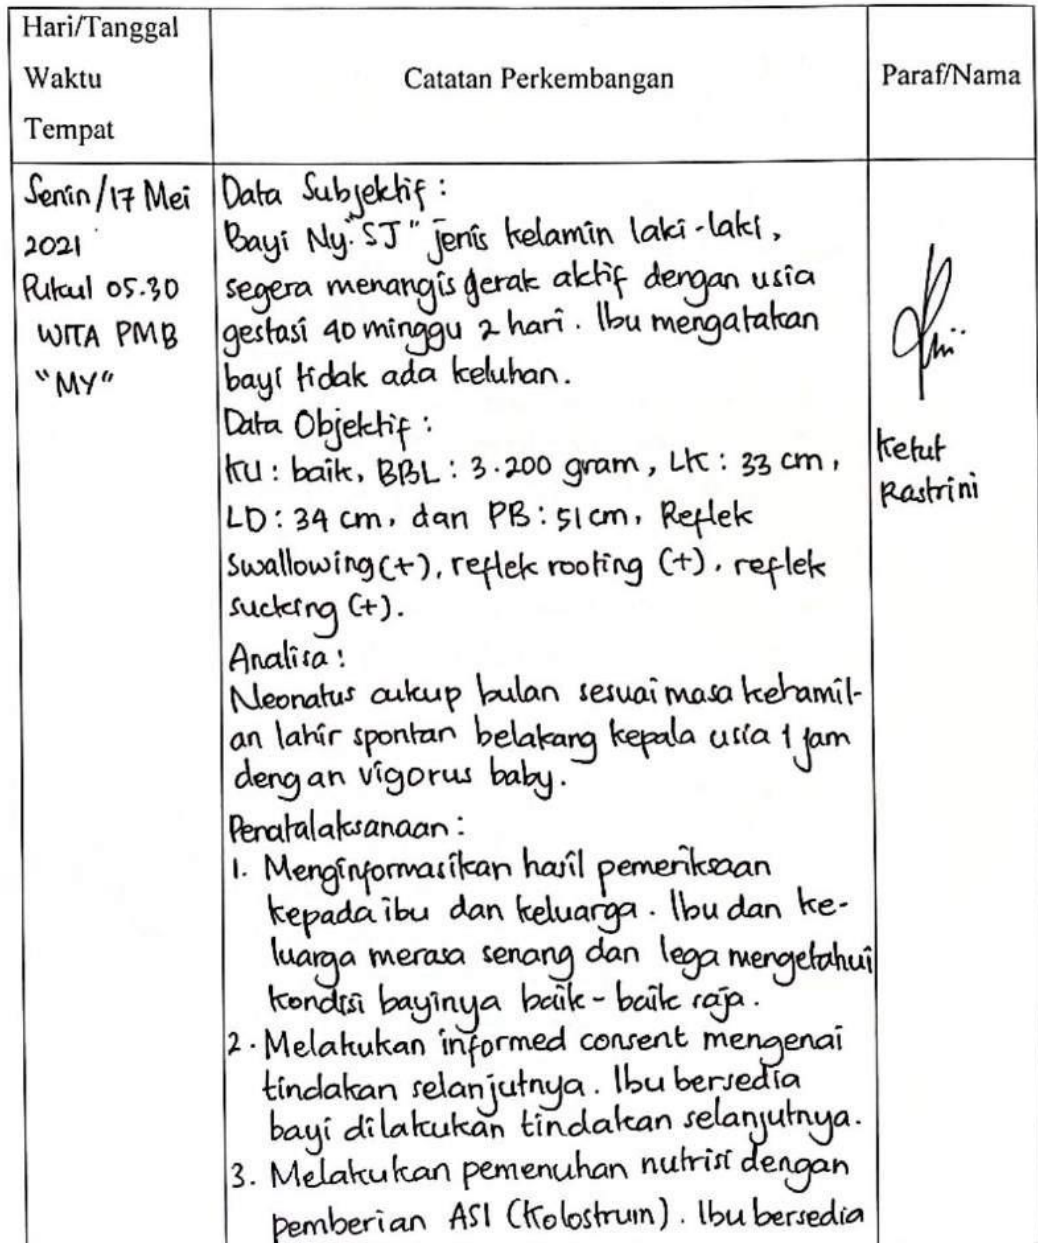 Hari/Tanggal
Waktu
Tempat
Catatan Perkembangan
Paraf/Nama
Senin/17 Mei
2021
Pukul 05.30
WITA PMB
"MY"
Data Subjektif :
Bayi Ny."SJ" jenis kelamin laki-laki,
segera menangis gerak aktif dengan usia
gestasi 40 minggu 2 hari. Ibu mengatakan
bayi tidak ada keluhan.
Data Objektif :
KU : baik, BBL : 3.200 gram, LK : 33 cm,
LD : 34 cm, dan PB : 51 cm, Reflek
Swallowing (+), reflek rooting (+), reflek
sucking (+).
Analisa :
Neonatus cukup bulan sesuai masa kehamil-
an lahir spontan belakang kepala usia 1 jam
dengan vigorus baby.
Penatalaksanaan :
1. Menginformasikan hasil pemeriksaan
kepada ibu dan keluarga. Ibu dan ke-
luarga merasa senang dan lega mengetahui
kondisi bayinya baik-baik saja.
2. Melakukan informed consent mengenai
tindakan selanjutnya. Ibu bersedia
bayi dilakukan tindakan selanjutnya.
3. Melakukan pemenuhan nutrisi dengan
pemberian ASI (Kolostrum). Ibu bersedia
Ketut
Rastrini